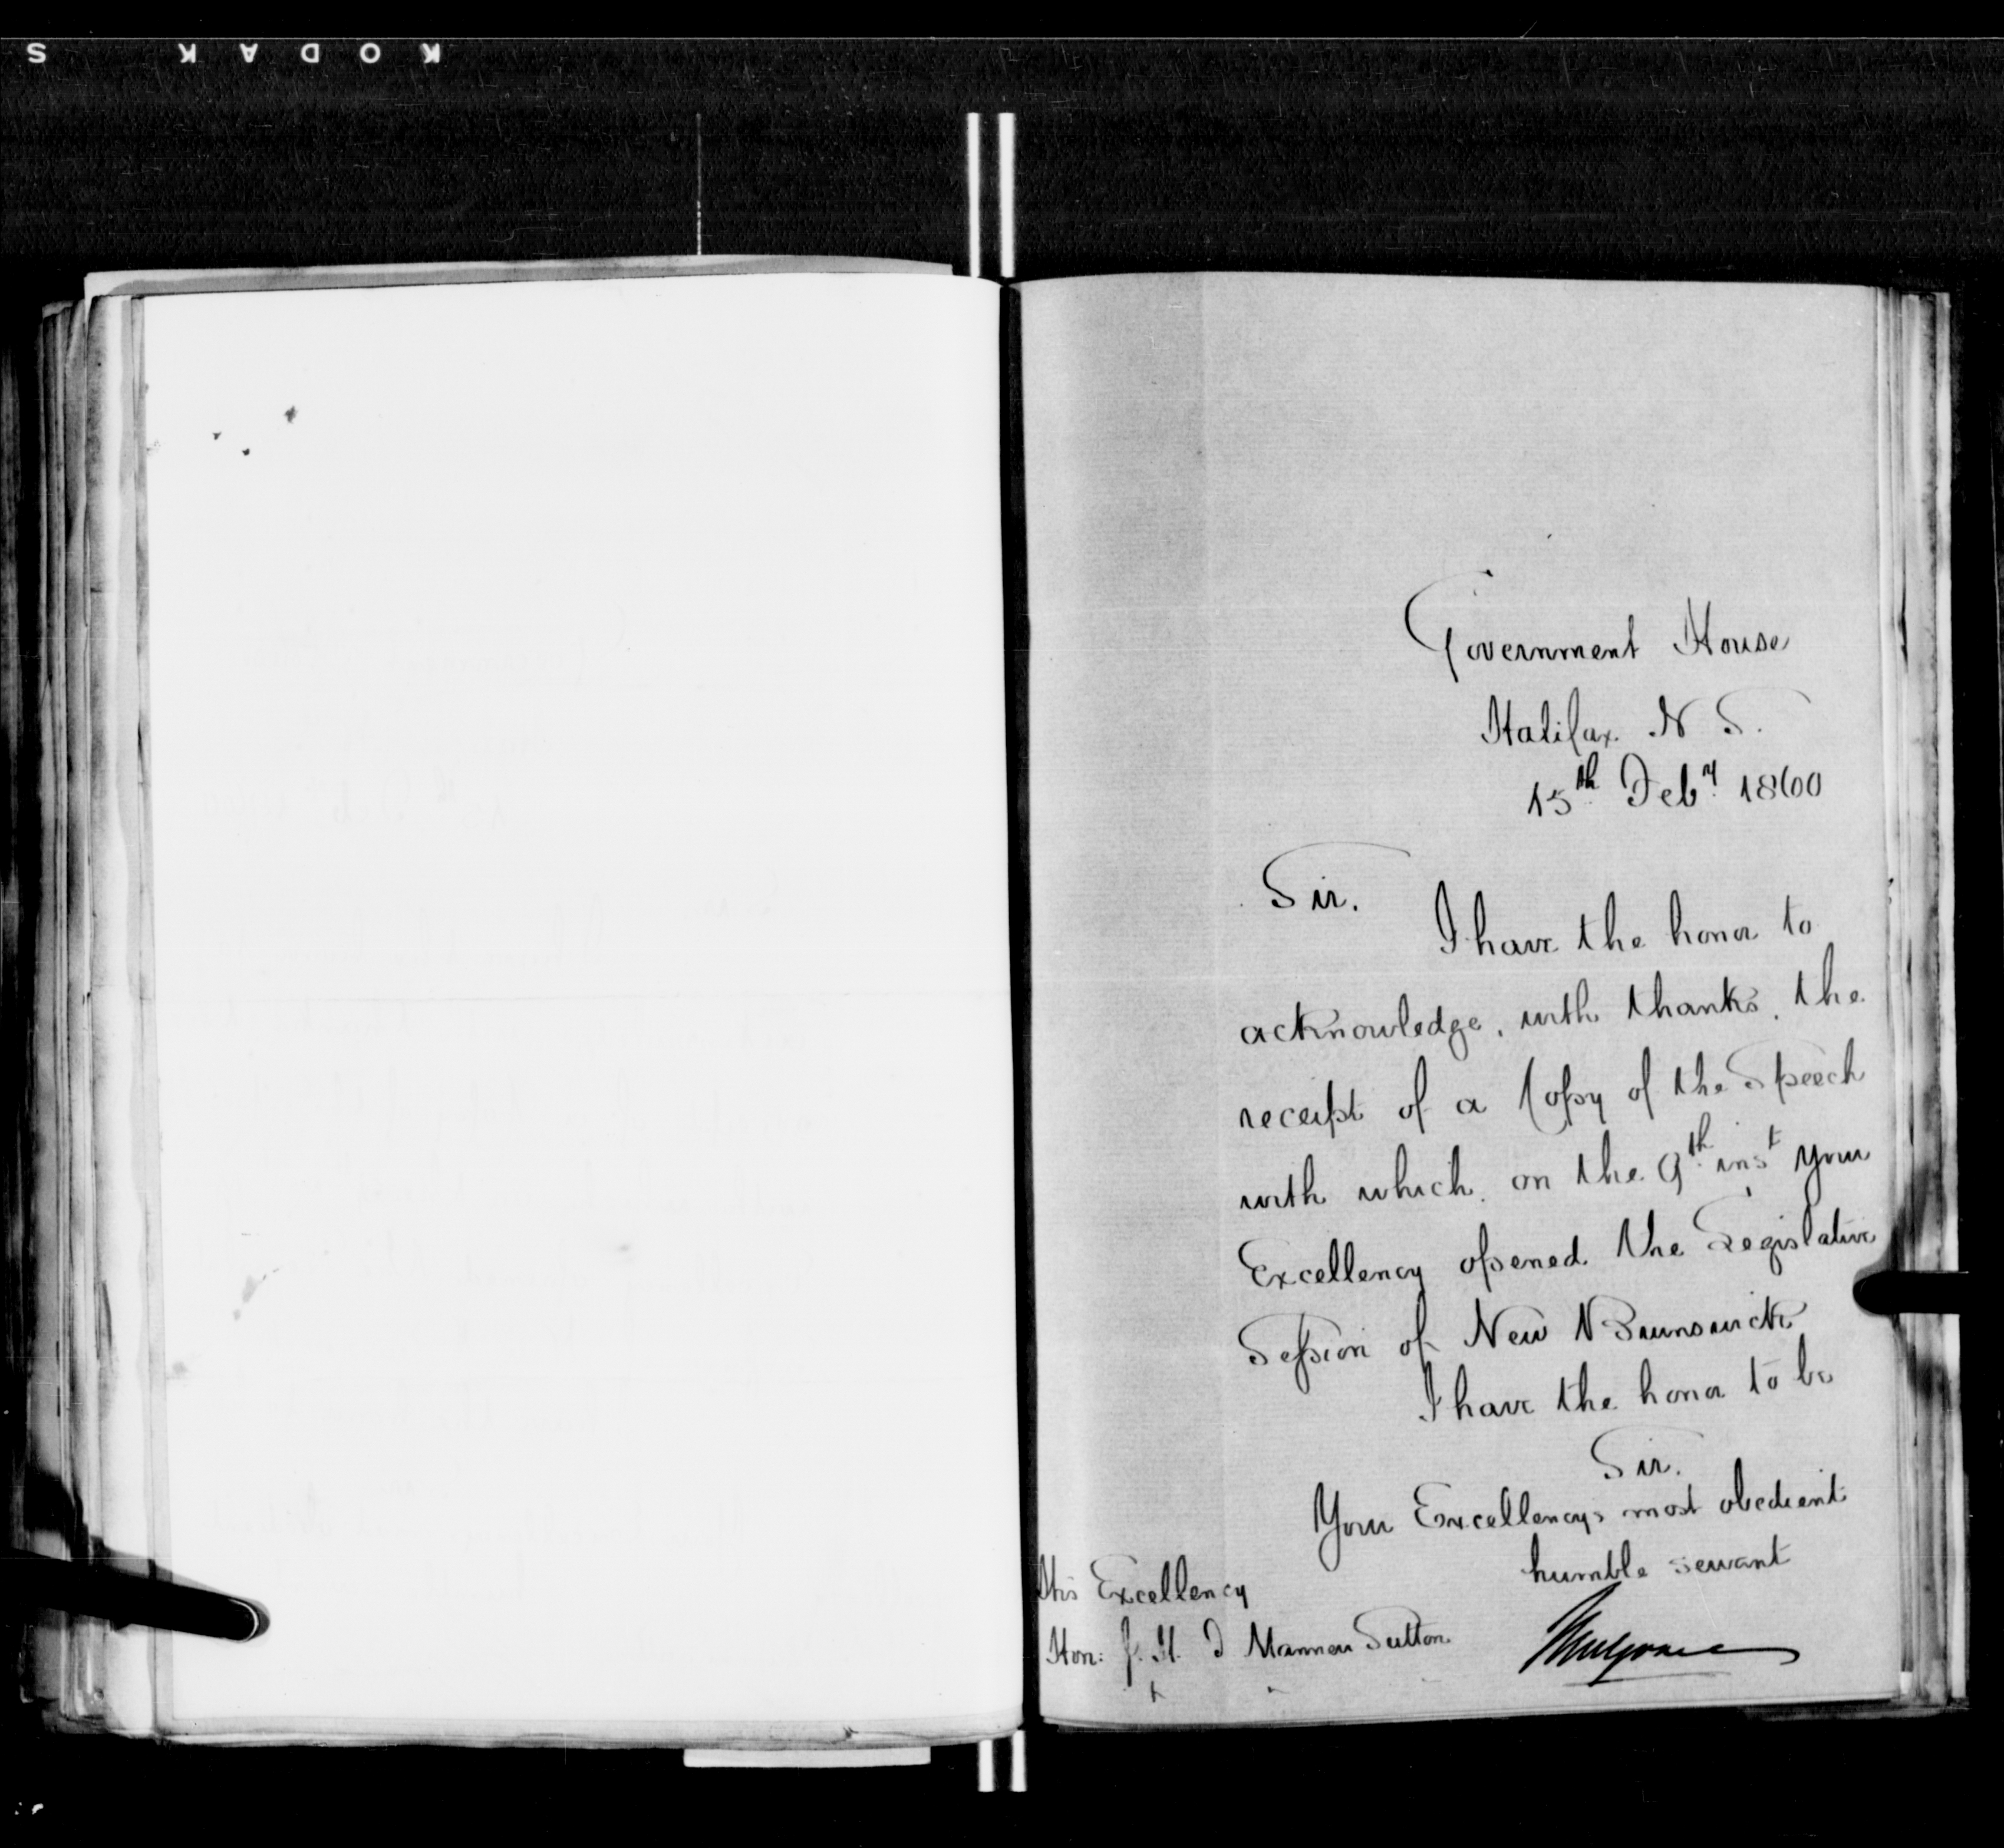 KODAK S
Government House
Halifax. N S.
15th Feby. 1860
Sir.
I have the honor to
acknowledge, with thanks, the
receipt of a Copy of the Speech
with which, on the 9th inst Your
Excellency opened the Legislative
Session of New Brunswick
I have the honor to be
Sir.
Your Excellency's most obedient
humble servant
His Excellency
Hon: J. H. T Manners Sutton
Mulgrave